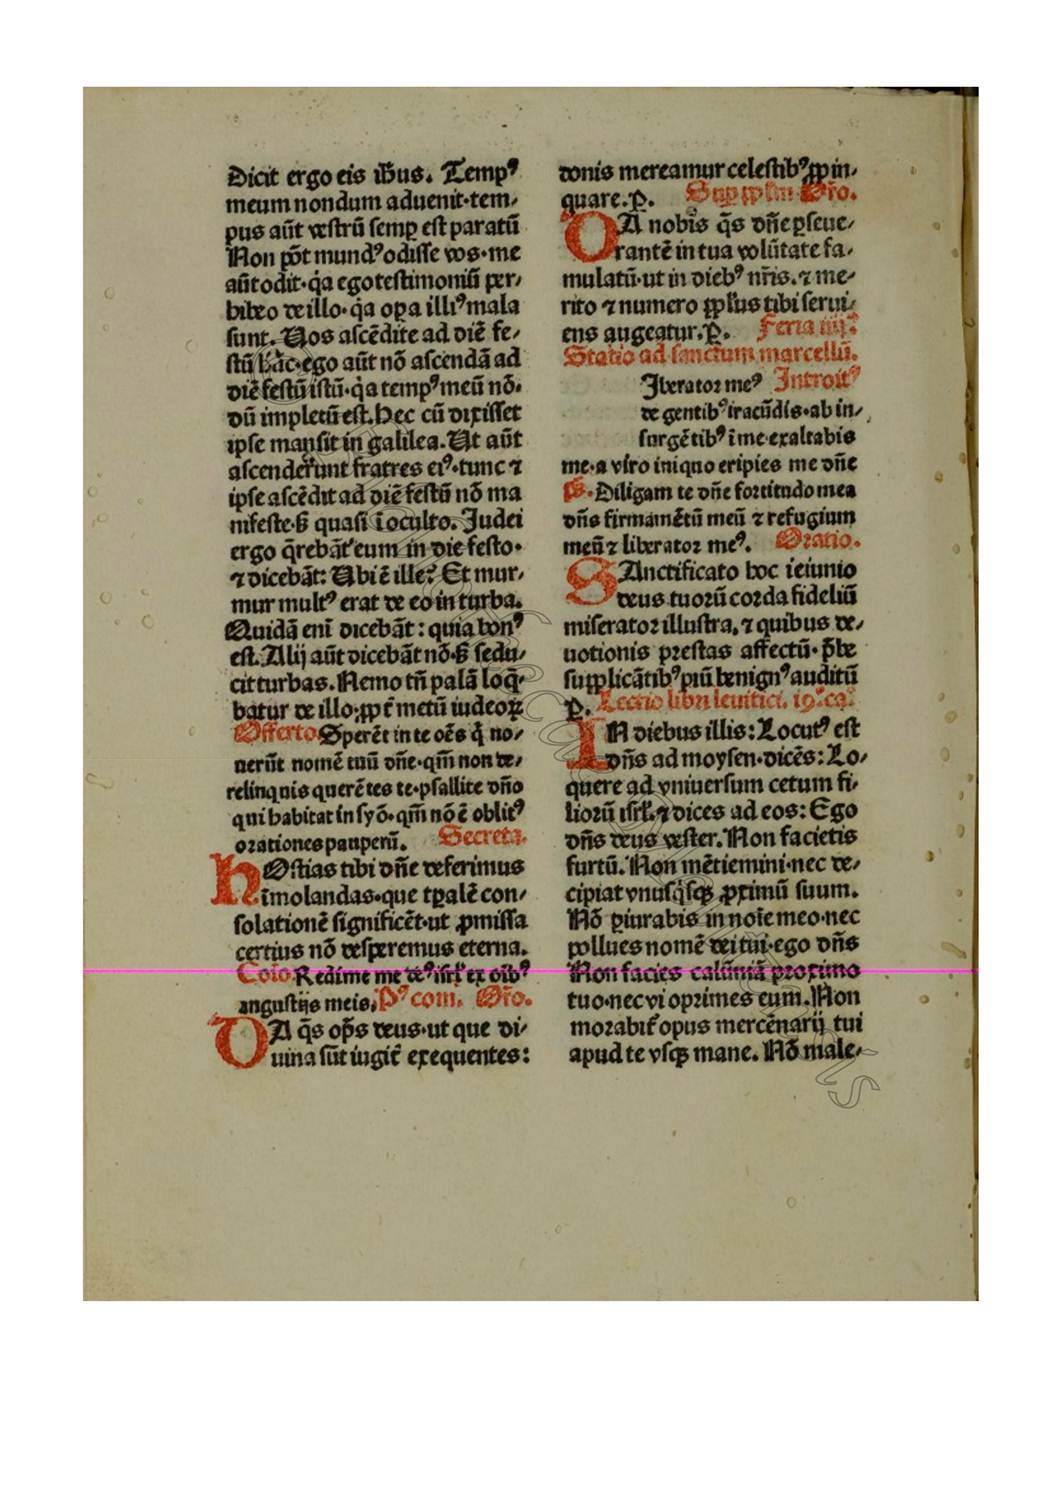 Dicit ergo eis ih̄us. Temp⁹
meum nondum aduenit·tem⸗
pus aūt vestrū semꝑ est paratū
Non pōt mund⁹ odisse vos·me
aūt odit·q̄a ego testimoniū per⸗
hibeo de illo·q̄a oꝑa illi⁹ mala
sunt. Uos ascēdite ad diē fe⸗
stū hāc·ego aūt nō ascendā ad
diē festū istū·q̄a temp⁹ meū nō·
dū impletū est. Hec cū dixisset
ipse mansit in galilea. Ut aūt
ascenderūnt fratres ei⁹·tunc ⁊
ipse ascēdit ad diē festū nō ma
nifeste·s̄ quasi ī oculto. Judei
ergo q̄rebāt eum in die festo·
⁊ dicebāt: Ubi ē ille? Et mur⸗
mur mult⁹ erat de eo in turba.
Quidā enī dicebāt: quia bon⁹
est. Alij aūt dicebāt nō·s̄ sedu⸗
cit turbas. Nemo tn̄ palā loq̄⸗
batur de illo·ꝓpt̄ metū iudeoꝝ
Offerto. Sperēt in te oēs q̄ no⸗
uerūt nomē tuū dn̄e·qm̄ non de⸗
relinquis querētes te·psallite dn̄o
qui habitat in syō·qm̄ nō ē oblit⁹
orationes pauperū. Secreta.
HOstias tibi dn̄e deferimus
īmolandas·que tꝑalē con⸗
solationē significēt·ut ꝓmissa
certius nō desperemus eterna.
Cōio. Redime me de⁹ isrl̄ ex oīb⁹
angustijs meis. P⁹ com. Or̄o.
DA q̄s op̄s deus·ut que di⸗
uina sūt iugit̄ exequentes:
donis mereamur celestib⁹ ꝓpin⸗
quare. ꝑ. Suꝑ pp̄lm Or̄o.
DA nobis q̄s dn̄e ꝑseue⸗
rantē in tua volūtate fa⸗
mulatū·ut in dieb⁹ nr̄is. ⁊ me⸗
rito ⁊ numero pp̄l'us tibi serui⸗
ens augeatur. ꝑ. Feria iiij.ᵃ
Statio ad sanctum marcellū.
Jberator me⁹ Introit⁹
de gentib⁹ iracūdis·ab in⸗
surgētib⁹ ī me·exaltabis
me·a viro iniquo eripies me dn̄e
ps̄. Diligam te dn̄e fortitudo mea
dn̄s firmamētū meū ⁊ refugium
meū ⁊ liberator me⁹. Oratio.
SAnctificato hoc ieiunio
deus tuorū corda fideliū
miserator illustra. ⁊ quibus de⸗
uotionis prestas affectū·p̄be
supplicātib⁹ piū benign⁹ auditū
ꝑ. Lectio libri leuitici. 19.ᵒ caᵒ.
IN diebus illis: Locut⁹ est
dn̄s ad moysen·dicēs: Lo⸗
quere ad vniuersum cetum fi⸗
liorū isrl̄·⁊ dices ad eos: Ego
dn̄s deus vester. Non facietis
furtū. Non mētiemini·nec de⸗
cipiat vnusq̄sqꝫ ꝓximū suum.
Nō ꝑiurabis in noīe meo·nec
pollues nomē dei tui·ego dn̄s
Non facies calūniā proximo
tuo·nec vi oprimes eum. Non
morabit̄ opus mercēnarij tui
apud te vsqꝫ mane. Nō male⸗